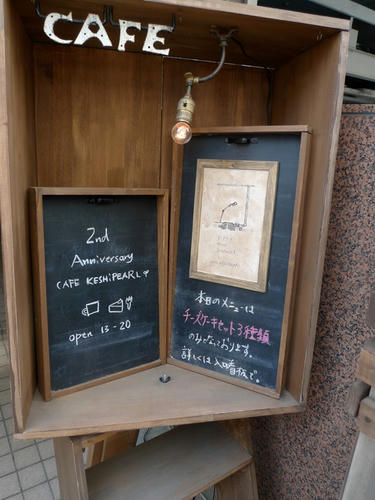 CAFE
2nd
Anniversary
CAFE KESHiPEARL
open 13-20
本日のメニューは
チーズケーキセット3種類
のみとなっております。
詳しくは入口看板で。